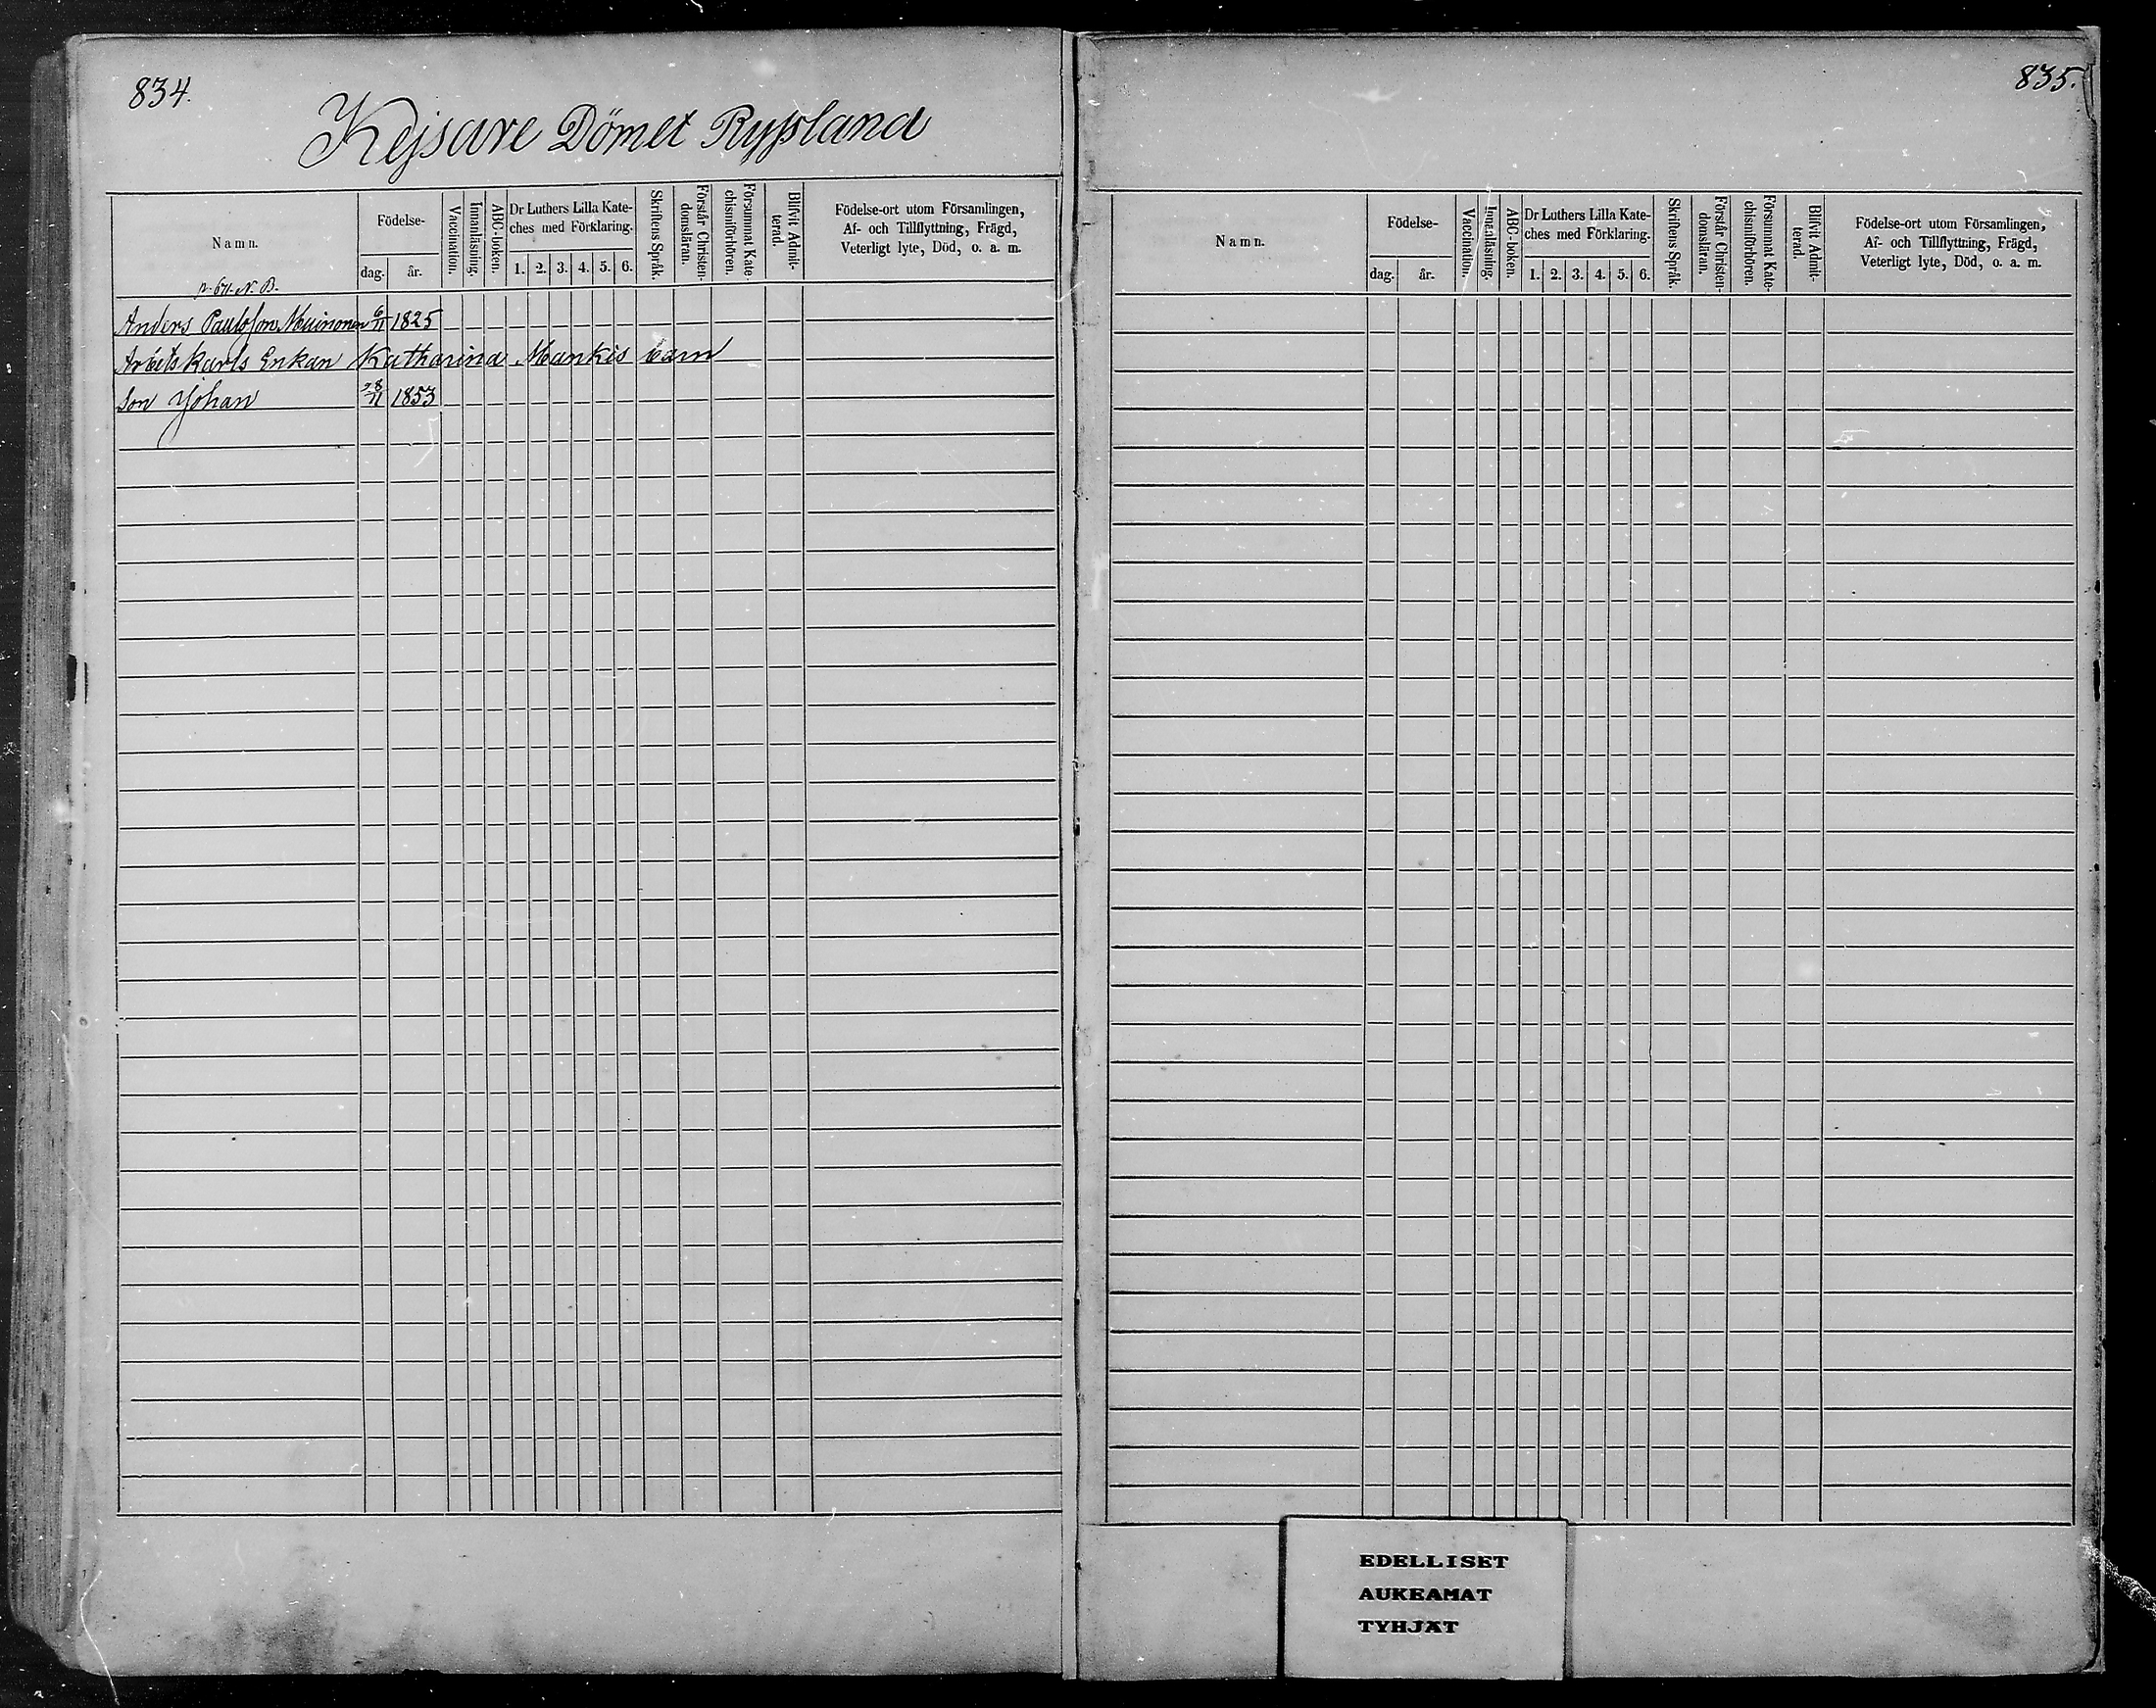 834.
Kejsare Dömet Ryssland
Namn.
Födelse-
dag.
år.
Vaccination.
Innanläsning.
ABC-boken.
Dr Luthers Lilla Kate-
ches med Förklaring.
1. 2. 3. 4. 5. 6.
Skriftens Språk.
Förstår Christen-
domsläran.
Försummat Kate-
chismiförhören.
Blifvit Admit-
terad.
Födelse-ort utom Församlingen,
Af- och Tillflyttning, Frägd,
Veterligt lyte, Död, o. a. m.
N. B.
Anders Paulsson Muinonen 6/11 1825
Arbetskarls Enkan Katharina Mankis barn
Son Johan 28/11 1853
835.
Namn.
Födelse-
dag.
år.
Vaccination.
Innanläsning.
ABC-boken.
Dr Luthers Lilla Kate-
ches med Förklaring.
1. 2. 3. 4. 5. 6.
Skriftens Språk.
Förstår Christen-
domsläran.
Försummat Kate-
chismiförhören.
Blifvit Admit-
terad.
Födelse-ort utom Församlingen,
Af- och Tillflyttning, Frägd,
Veterligt lyte, Död, o. a. m.
EDELLISET
AUKEAMAT
TYHJÄT